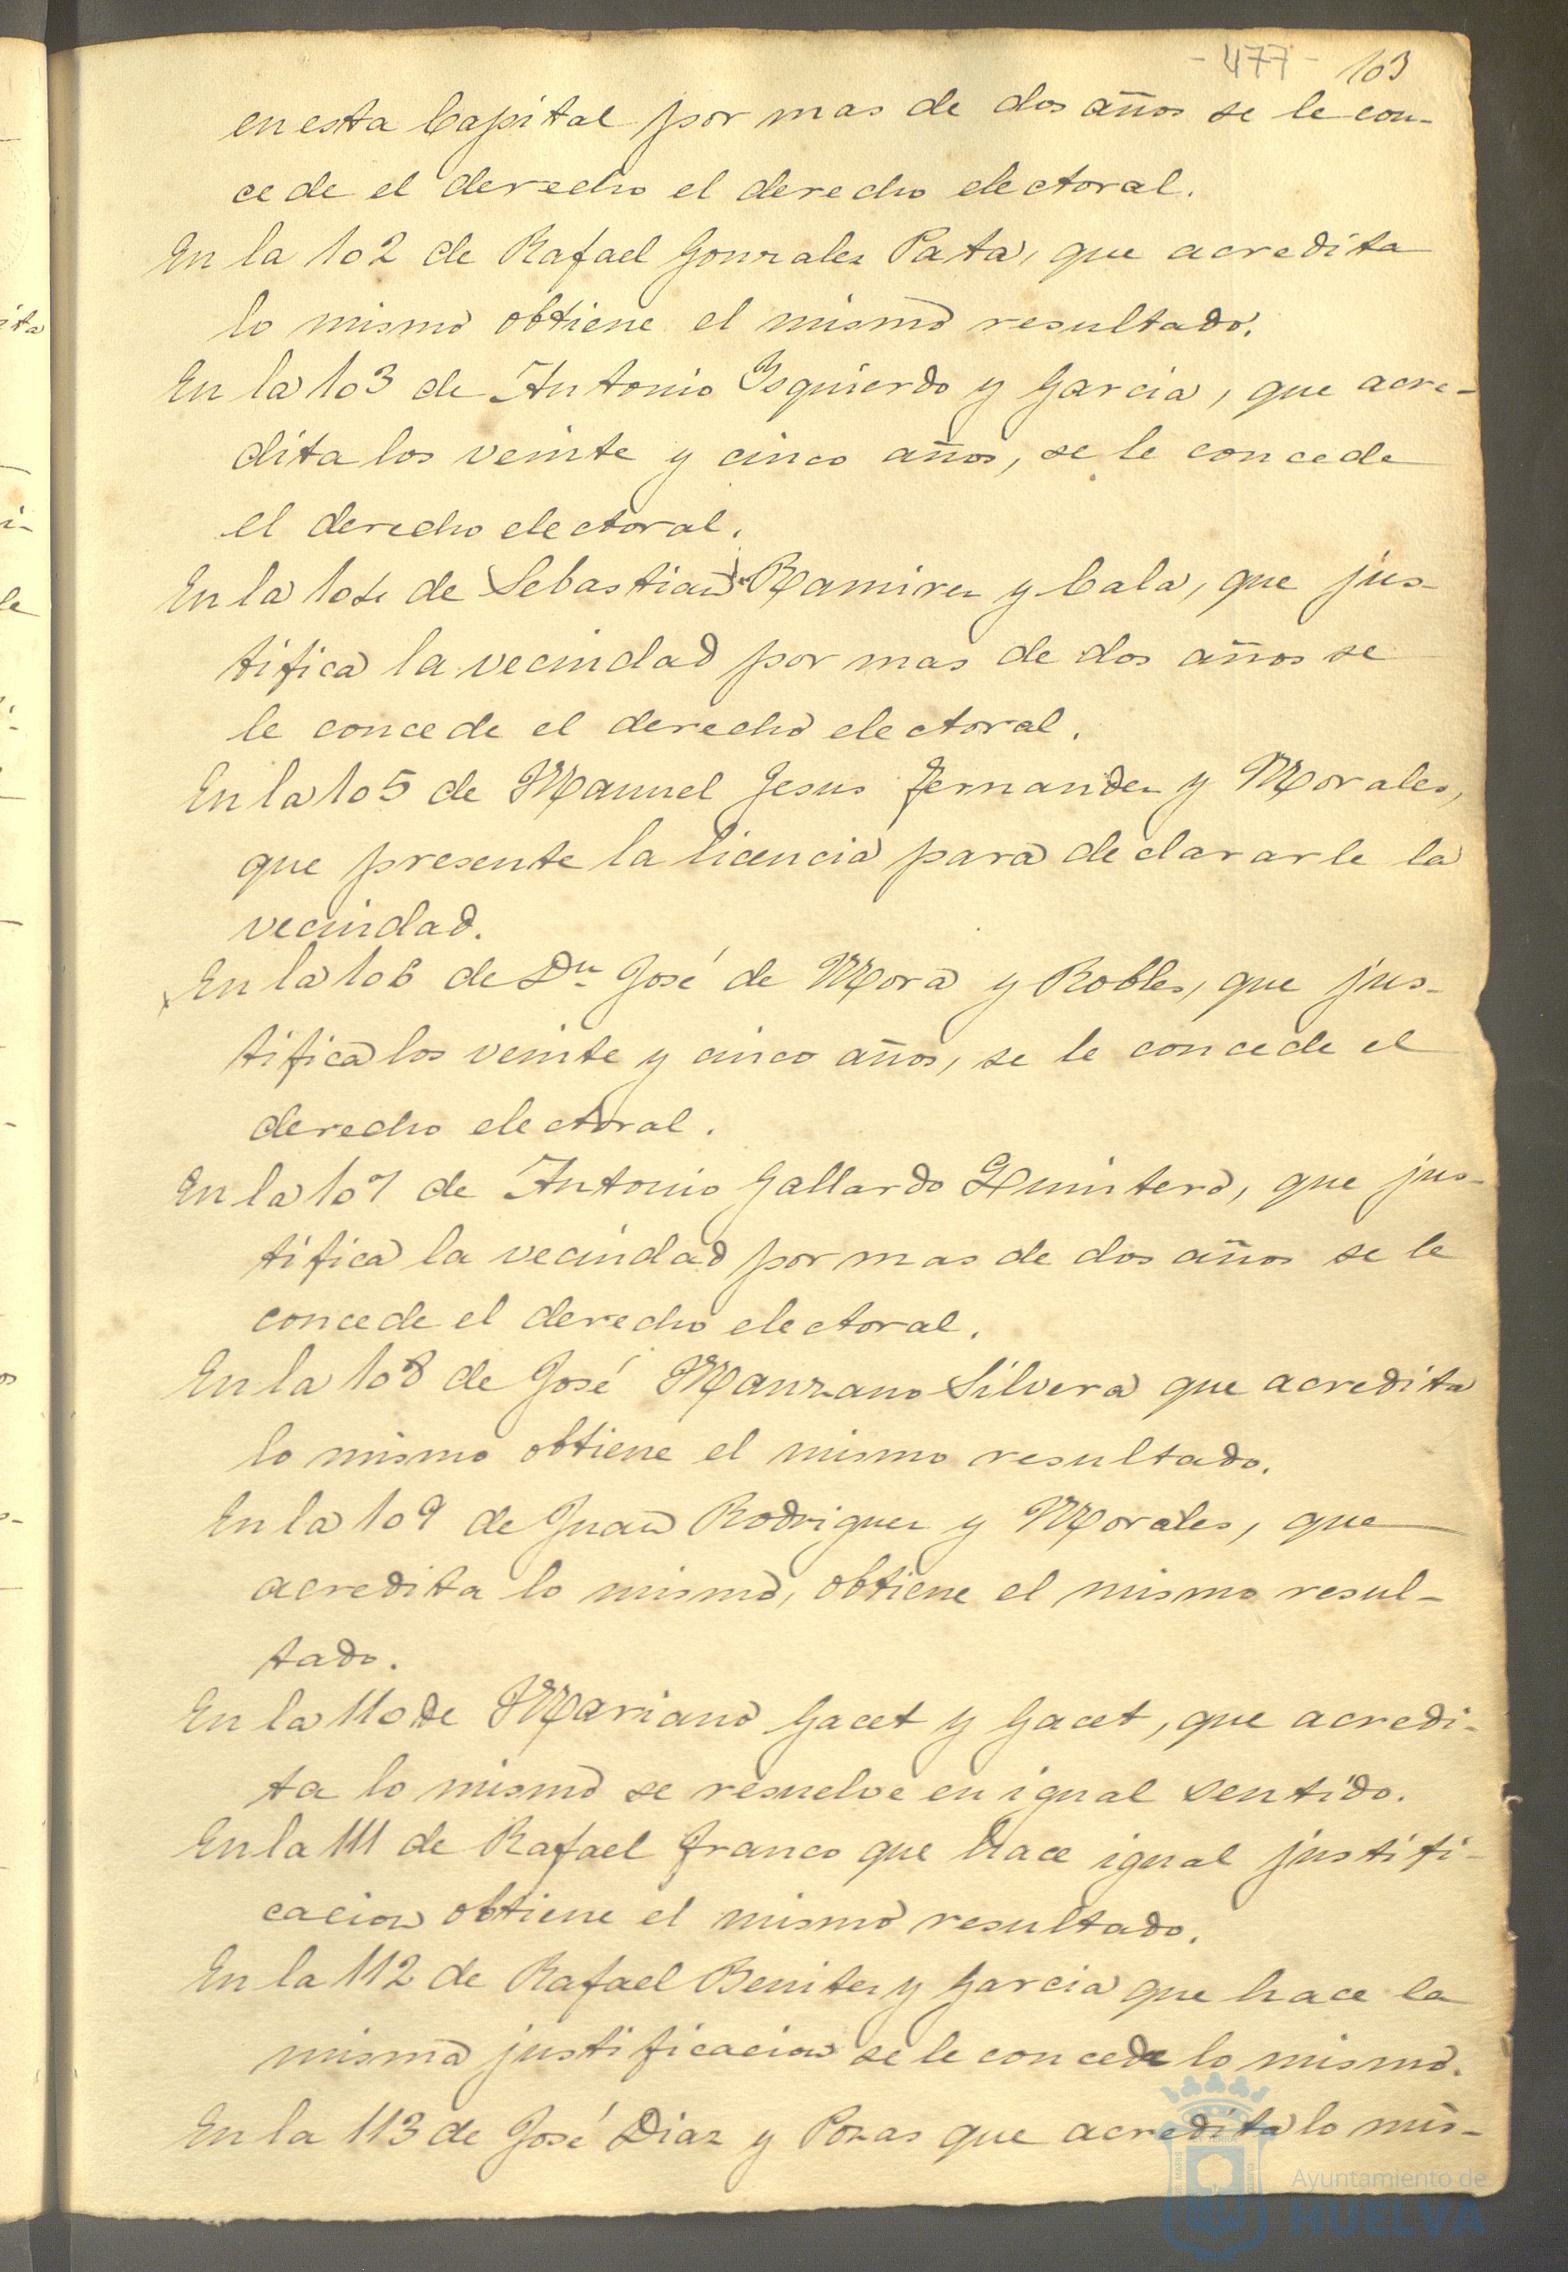 - 477 - 103
en esta Capital por mas de dos años se le con-
cede el derecho el derecho electoral.
En la 102 de Rafael Gonzalez Pata, que acredita
lo mismo obtiene el mismo resultado.
En la 103 de Antonio Izquierdo y Garcia, que acre-
dita los veinte y cinco años, se le concede
el derecho electoral.
En la 104 de Sebastian Ramirez y Cala, que jus-
tifica la vecindad por mas de dos años se
le concede el derecho electoral.
En la 105 de Manuel Jesus Fernandez y Morales,
que presente la licencia para declararle la
vecindad.
En la 106 de Dn José de Mora y Robles, que jus-
tifica los veinte y cinco años, se le concede el
derecho electoral.
En la 107 de Antonio Gallardo Quintero, que jus-
tifica la vecindad por mas de dos años se le
concede el derecho electoral.
En la 108 de José Manzano Silvera que acredita
lo mismo obtiene el mismo resultado.
En la 109 de Juan Rodriguez y Morales, que
acredita lo mismo, obtiene el mismo resul-
tado.
En la 110 de Mariano Gacet y Gacet, que acredi-
ta lo mismo se resuelve en igual sentido.
En la 111 de Rafael Franco que hace igual justifi-
cacion obtiene el mismo resultado.
En la 112 de Rafael Benitez y Garcia que hace la
misma justificacion se le concede lo mismo.
En la 113 de José Diaz y Pozas que acredita lo mis-
Ayuntamiento de
HUELVA